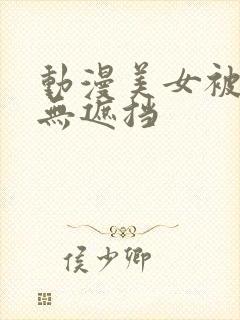 動漫美女被
無遮挡
侯少卿